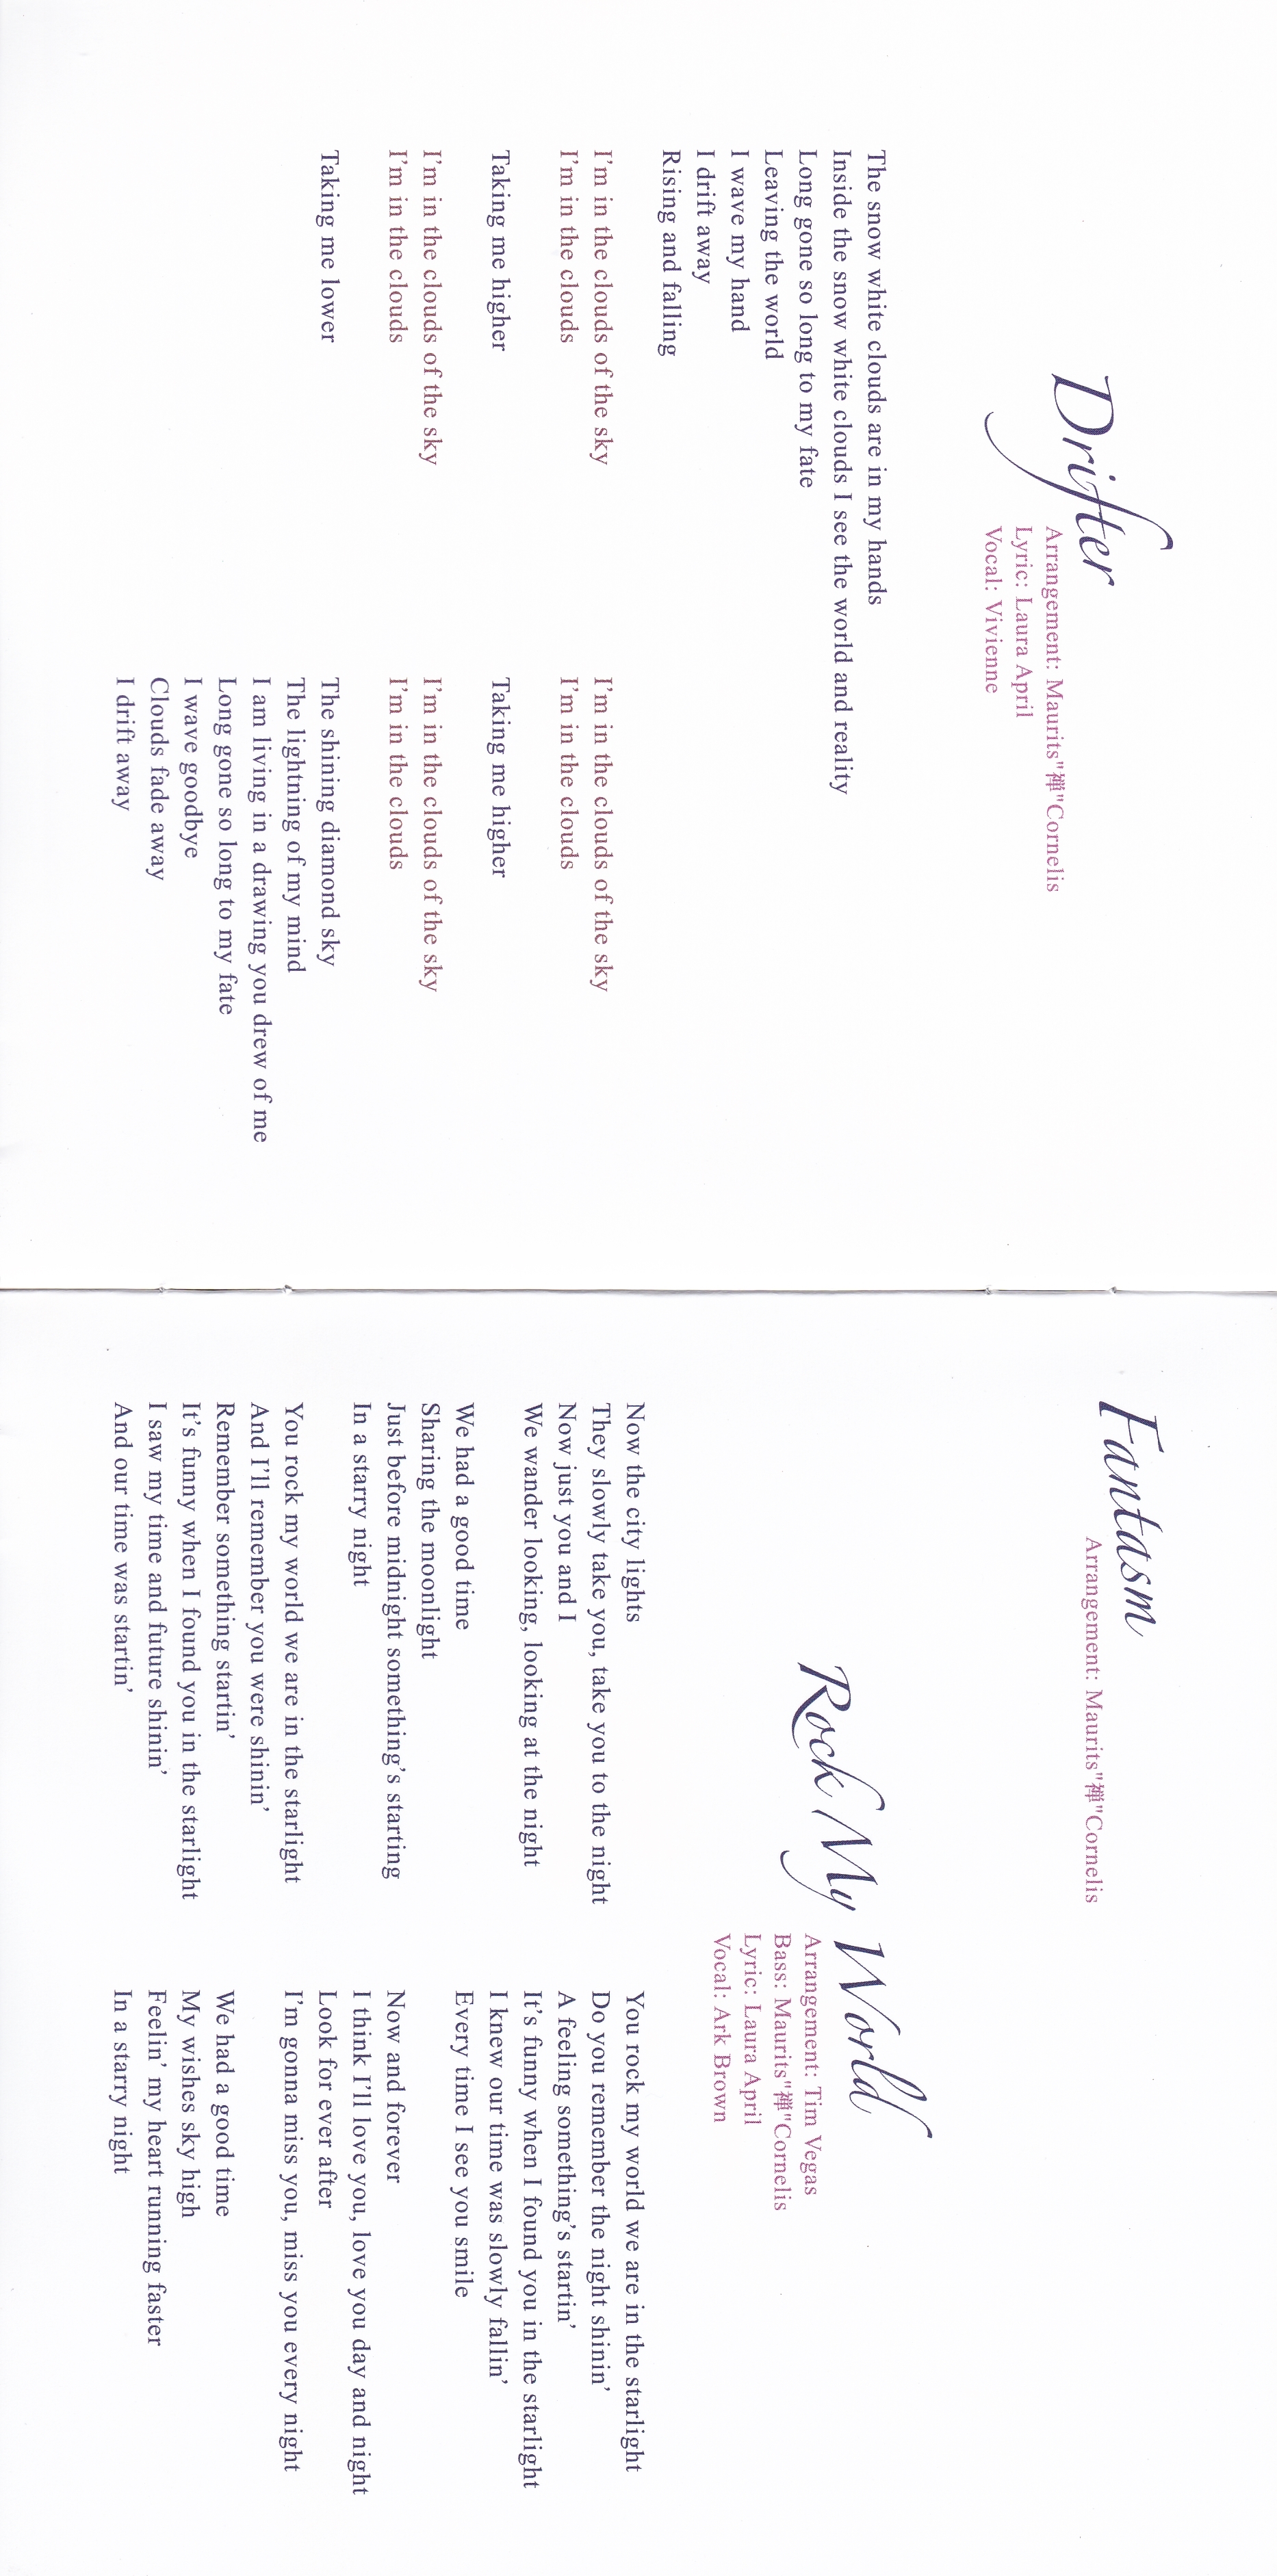 Drifter
Arrangement: Maurits"禅"Cornelis
Lyric: Laura April
Vocal: Vivienne
The snow white clouds are in my hands
Inside the snow white clouds I see the world and reality
Long gone so long to my fate
Leaving the world
I wave my hand
I drift away
Rising and falling
I'm in the clouds of the sky
I'm in the clouds
Taking me higher
I'm in the clouds of the sky
I'm in the clouds
Taking me lower
I'm in the clouds of the sky
I'm in the clouds
Taking me higher
I'm in the clouds of the sky
I'm in the clouds
The shining diamond sky
The lightning of my mind
I am living in a drawing you drew of me
Long gone so long to my fate
I wave goodbye
Clouds fade away
I drift away
Fantasm
Arrangement: Maurits"禅"Cornelis
Rock My World
Arrangement: Tim Vegas
Bass: Maurits"禅"Cornelis
Lyric: Laura April
Vocal: Ark Brown
Now the city lights
They slowly take you, take you to the night
Now just you and I
We wander looking, looking at the night
We had a good time
Sharing the moonlight
Just before midnight something's starting
In a starry night
You rock my world we are in the starlight
And I'll remember you were shinin'
Remember something startin'
It's funny when I found you in the starlight
I saw my time and future shinin'
And our time was startin'
You rock my world we are in the starlight
Do you remember the night shinin'
A feeling something's startin'
It's funny when I found you in the starlight
I knew our time was slowly fallin'
Every time I see you smile
Now and forever
I think I'll love you, love you day and night
Look for ever after
I'm gonna miss you, miss you every night
We had a good time
My wishes sky high
Feelin' my heart running faster
In a starry night